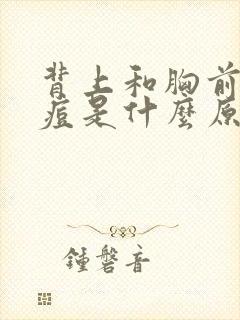 背上和胸前
痘是什麼原
鍾磬音